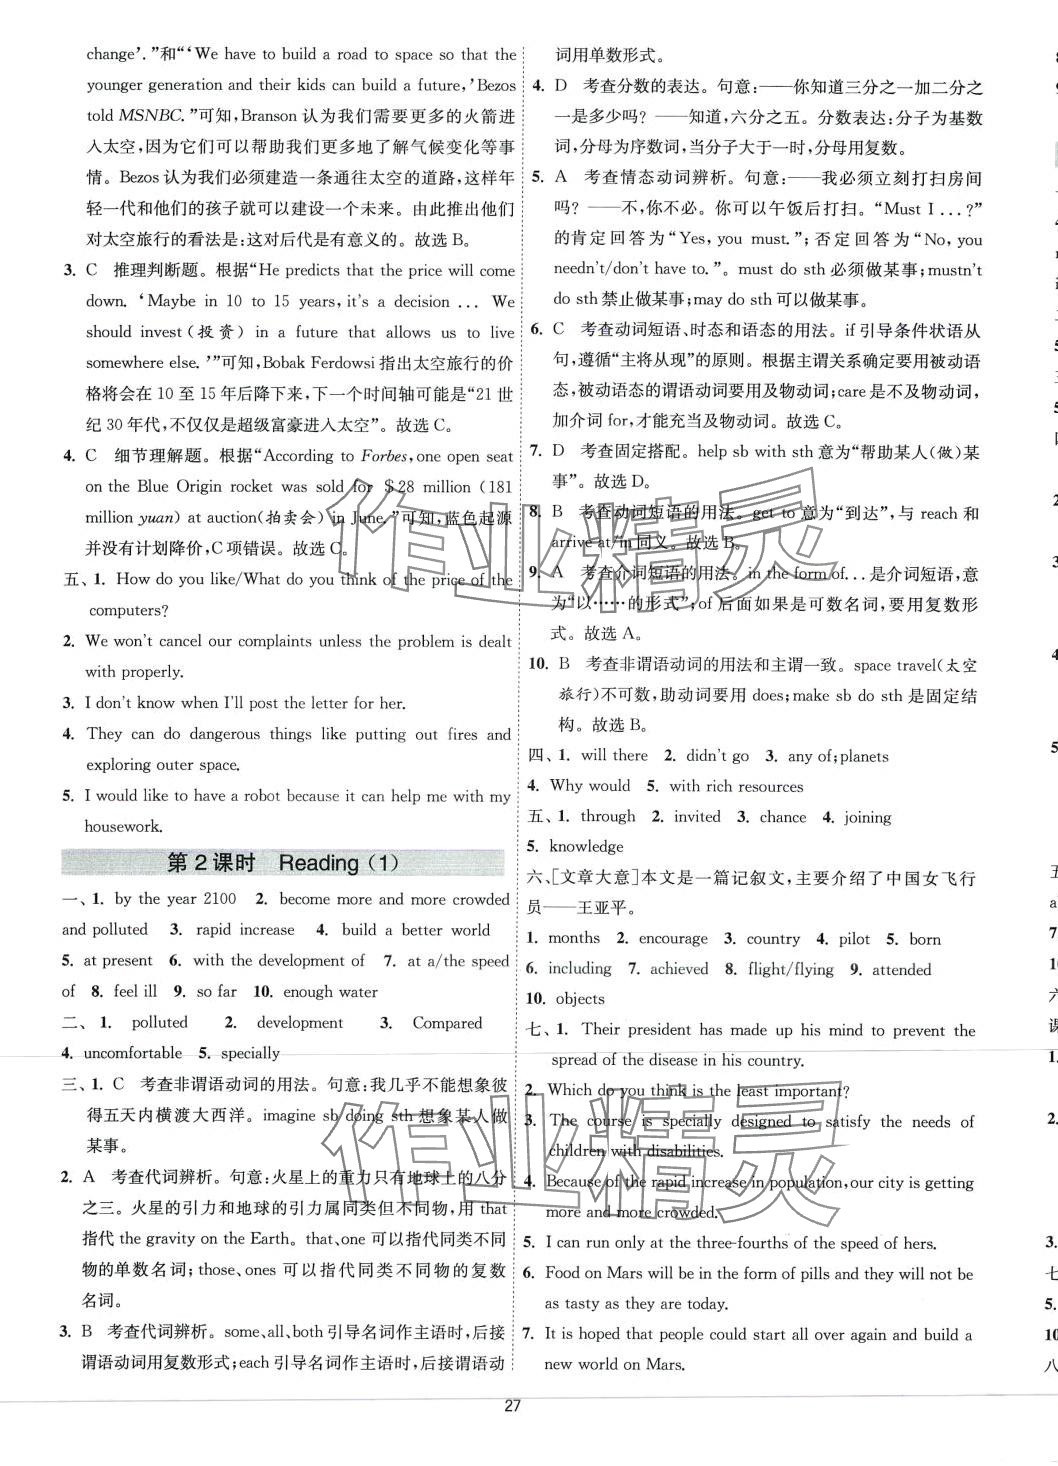 change'."和"'We have to build a road to space so that the
younger generation and their kids can build a future,'Bezos
told MSNBC."可知,Branson 认为我们需要更多的火箭进
入太空,因为它们可以帮助我们更多地了解气候变化等事
情。Bezos 认为我们必须建造一条通往太空的道路,这样年
轻一代和他们的孩子就可以建设一个未来。由此推出他们
对太空旅行的看法是:这对后代是有意义的。故选 B。
3. C 推理判断题。根据"He predicts that the price will come
down. 'Maybe in 10 to 15 years,it's a decision ... We
should invest(投资) in a future that allows us to live
somewhere else.'"可知,Bobak Ferdowsi 指出太空旅行的价
格将会在 10 至 15 年后降下来,下一个时间轴可能是"21 世
纪 30 年代,不仅仅是超级富豪进入太空"。故选 C。
4. C 细节理解题。根据"According to Forbes,one open seat
on the Blue Origin rocket was sold for $28 million (181
million yuan) at auction(拍卖会) in June."可知,蓝色起源
并没有计划降价,C 项错误。故选 C。
五、1. How do you like/What do you think of the price of the
computers?
2. We won't cancel our complaints unless the problem is dealt
with properly.
3. I don't know when I'll post the letter for her.
4. They can do dangerous things like putting out fires and
exploring outer space.
5. I would like to have a robot because it can help me with my
housework.
第 2 课时 Reading (1)
一、1. by the year 2100 2. become more and more crowded
and polluted 3. rapid increase 4. build a better world
5. at present 6. with the development of 7. at a/the speed
of 8. feel ill 9. so far 10. enough water
二、1. polluted 2. development 3. Compared
4. uncomfortable 5. specially
三、1. C 考查非谓语动词的用法。句意:我几乎不能想象彼
得五天内横渡大西洋。imagine sb doing sth 想象某人做
某事。
2. A 考查代词辨析。句意:火星上的重力只有地球上的八分
之三。火星的引力和地球的引力属同类但不同物,用 that
指代 the gravity on the Earth。that、one 可以指代同类不同
物的单数名词;those、ones 可以指代同类不同物的复数
名词。
3. B 考查代词辨析。some、all、both 引导名词作主语时,后接
谓语动词用复数形式;each 引导名词作主语时,后接谓语动
词用单数形式。
4. D 考查分数的表达。句意:——你知道三分之一加二分之
一是多少吗? ——知道,六分之五。分数表达:分子为基数
词,分母为序数词,当分子大于一时,分母用复数。
5. A 考查情态动词辨析。句意:——我必须立刻打扫房间
吗? ——不,你不必。你可以午饭后打扫。"Must I ...?"
的肯定回答为"Yes, you must.";否定回答为"No, you
needn't/don't have to."。must do sth 必须做某事;mustn't
do sth 禁止做某事;may do sth 可以做某事。
6. C 考查动词短语、时态和语态的用法。if 引导条件状语从
句,遵循"主将从现"的原则。根据主谓关系确定要用被动语
态,被动语态的谓语动词要用及物动词;care 是不及物动词,
加介词 for,才能充当及物动词。故选 C。
7. D 考查固定搭配。help sb with sth 意为"帮助某人(做)某
事"。故选 D。
8. B 考查动词短语的用法。get to 意为"到达",与 reach 和
arrive at/in 同义。故选 B。
9. A 考查介词短语的用法。in the form of... 是介词短语,意
为"以……的形式";of 后面如果是可数名词,要用复数形
式。故选 A。
10. B 考查非谓语动词的用法和主谓一致。space travel(太空
旅行)不可数,助动词要用 does;make sb do sth 是固定结
构。故选 B。
四、1. will there 2. didn't go 3. any of;planets
4. Why would 5. with rich resources
五、1. through 2. invited 3. chance 4. joining
5. knowledge
六、[文章大意]本文是一篇记叙文,主要介绍了中国女飞行
员——王亚平。
1. months 2. encourage 3. country 4. pilot 5. born
6. including 7. achieved 8. flight/flying 9. attended
10. objects
七、1. Their president has made up his mind to prevent the
spread of the disease in his country.
2. Which do you think is the least important?
3. The course is specially designed to satisfy the needs of
children with disabilities.
4. Because of the rapid increase in population,our city is getting
more and more crowded.
5. I can run only at the three-fourths of the speed of hers.
6. Food on Mars will be in the form of pills and they will not be
as tasty as they are today.
7. It is hoped that people could start all over again and build a
new world on Mars.
27
作业精灵
作业精灵